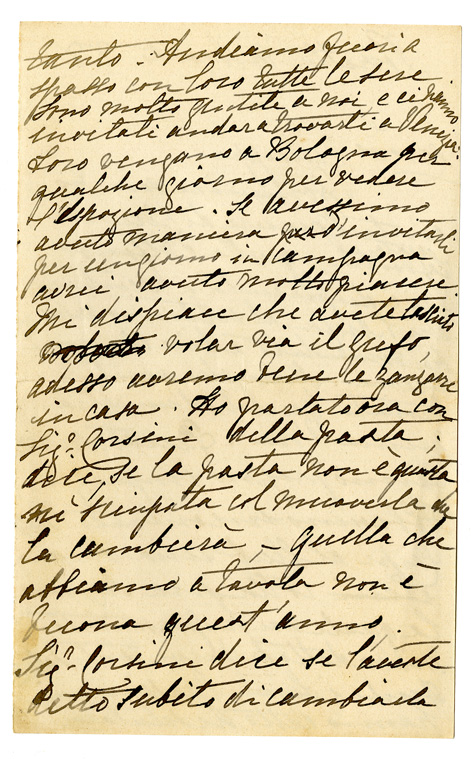 tanto. Andiamo fuori a
spasso con loro tutte le sere
sono molto gentile a noi, e ci hanno
invitati andar a trovarti a Venezia.
Loro vengano a Bologna per
qualche giorno per vedere
l'Espozione. Se avessimo
avuto maniera d'invitarli
per un giorno in Campagna
avrei avuto molto piacere.
Mi dispiace che avete lasciato
volar via il gufo,
adesso avremo bene le zanzare
in casa. Ho parlato ora con
Sigr. Corsini della pasta,
dice, se la pasta non è guasta
nè sciupata col muoverla che
la cambierà, – quella che
abbiamo a tavola non è
buona quest'anno.
Sigr. Corsini dice se l'aveste
detto subito di cambiarla